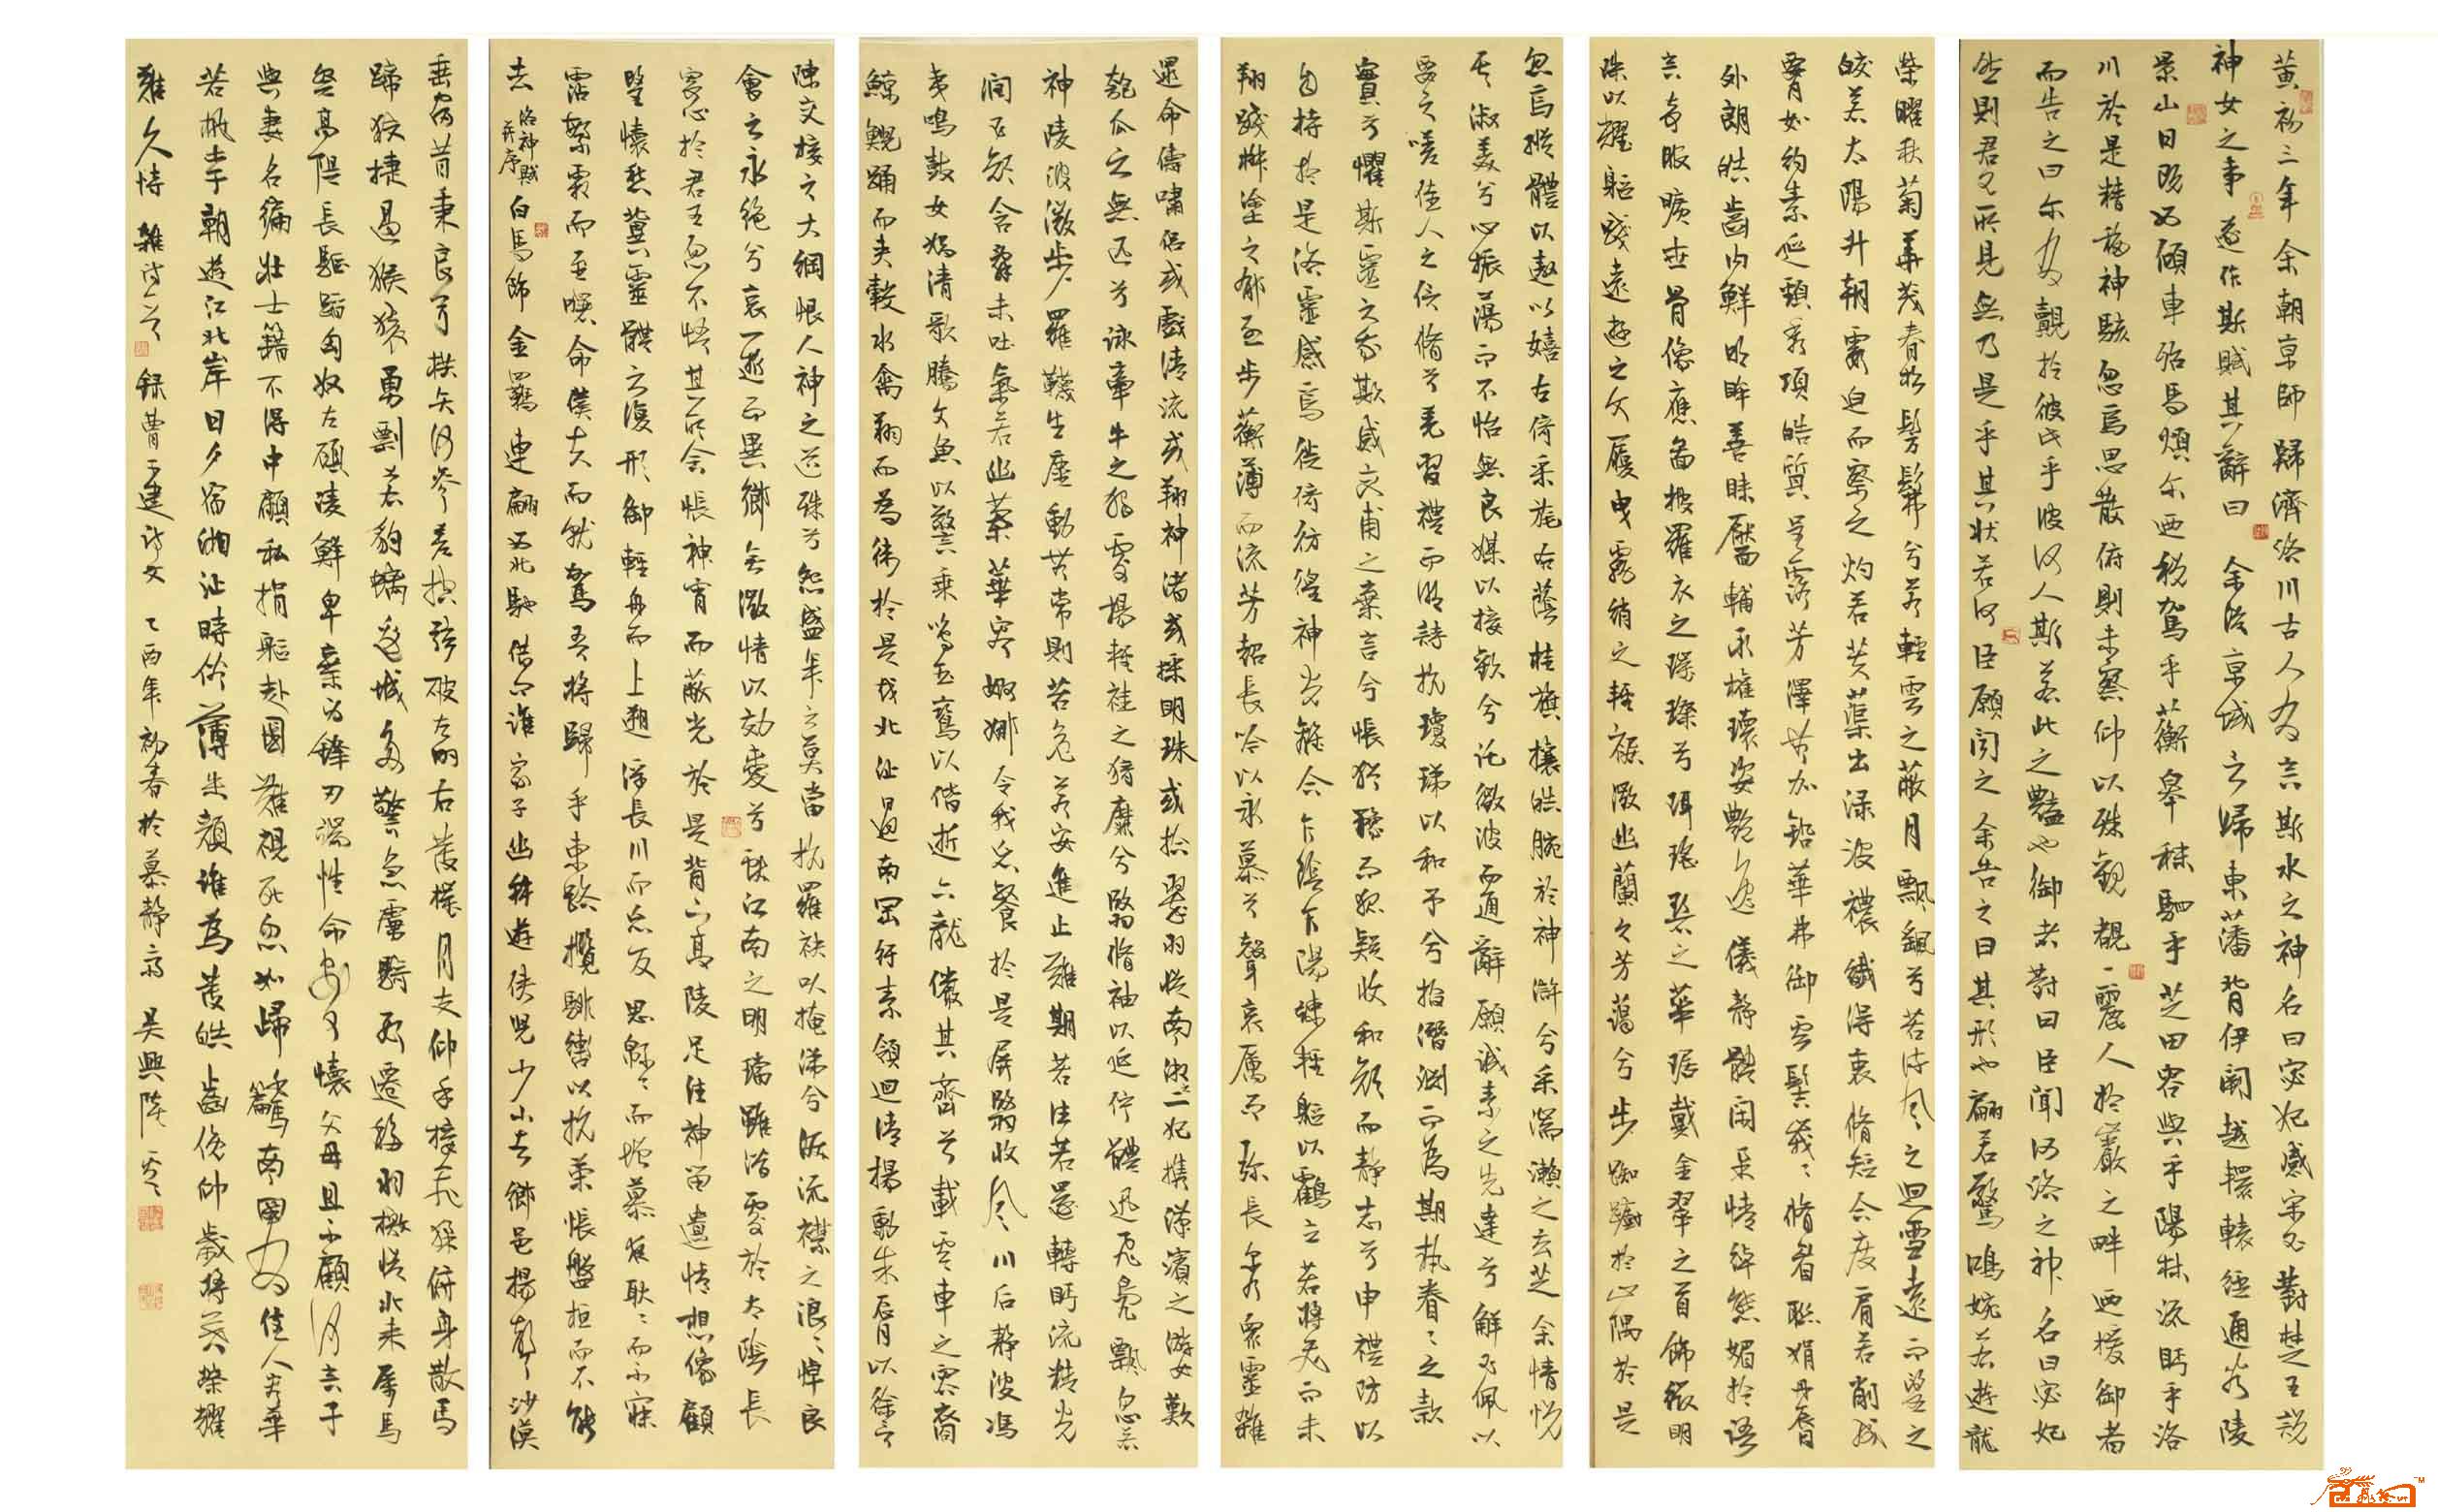 黄初三年余朝京師歸濟洛川古人有言斯水之神名曰宓妃感宋玉對楚王說
神女之事遂作斯賦其辭曰 余從京城言歸東藩背伊闕越轘轅經通谷陵
景山日既西傾車殆馬煩尔迺税駕乎蘅皋秣駟乎芝田容與乎陽林流眄乎洛
川於是精移神駭忽焉思散俯則未察仰以殊觀覩一麗人於巖之畔迺援御者
而告之曰尔有覿於彼者乎彼何人斯若此之豔也御者對曰臣聞河洛之神名曰宓妃
然則君王所見無乃是乎其狀若何臣願聞之余告之曰其形也翩若驚鴻婉若遊龍
榮曜秋菊華茂春松髣髴兮若輕雲之蔽月飄飖兮若流風之迴雪遠而望之
皎若太陽升朝霞迫而察之灼若芙蕖出渌波襛纖得衷脩短合度肩若削成
腰如約素延頸秀項皓質呈露芳澤無加鉛華弗御雲髻峩峩脩眉聯娟丹脣
外朗皓齒内鮮明眸善睞靨輔承權瓌姿艷逸儀靜體閑柔情綽態媚於語
言奇服曠世骨像應圖披羅衣之璀璨兮珥瑶碧之華琚戴金翠之首飾綴明
珠以耀軀踐遠遊之文履曳霧綃之輕裾微幽蘭之芳藹兮步踟躕於山隅於是
忽焉縱體以遨以嬉左倚采旄右蔭桂旗攘皓腕於神滸兮采湍瀨之玄芝余情悦
其淑美兮心振蕩而不怡無良媒以接歡兮託微波而通辭願誠素之先達兮解玉佩以
要之嗟佳人之信脩兮羌習禮而明詩抗瓊珶以和予兮指潛淵而為期執眷眷之款
實兮懼斯靈之我欺感交甫之棄言兮悵猶豫而狐疑收和顔而靜志兮申禮防以
自持於是洛靈感焉徙倚彷徨神光離合乍陰乍陽竦輕軀以鶴立若將飛而未
翔踐椒塗之郁烈步蘅薄而流芳超長吟以永慕兮聲哀厲而弥長尔迺衆靈雜
遝命儔嘯侣或戲清流或翔神渚或採明珠或拾翠羽從南湘之二妃攜漢濱之游女歎
匏瓜之無匹兮詠牽牛之獨處揚輕袿之猗靡兮翳脩袖以延佇體迅飛鳧飄忽若
神陵波微步羅韈生塵動無常則若危若安進止難期若往若還轉眄流精光
潤玉顔含辭未吐氣若幽蘭華容婀娜令我忘餐於是屏翳收風川后靜波馮
夷鳴鼓女媧清歌騰文魚以警乘鳴玉鸞以偕逝六龍儼其齊首載雲車之容裔
鯨鯢踊而夾轂水禽翔而為衛於是越北沚過南岡紆素領迴清揚動朱脣以徐言
陳交接之大綱恨人神之道殊兮怨盛年之莫當抗羅袂以掩涕兮淚流襟之浪浪悼良
會之永絶兮哀一逝而異鄉無微情以効愛兮獻江南之明璫雖潛處於太陰長
寄心於君王忽不悟其所舍悵神宵而蔽光於是背下高陵足往神留遺情想像顧
望懷愁冀靈體之復形御輕舟而上遡浮長川而忘反思緜緜而增慕夜耿耿而不寐
霑繁霜而至曙命僕夫而就駕吾將歸乎東路攬騑轡以抗策悵盤桓而不能
去 洛神賦并序 白馬飾金羈連翩西北馳借問誰家子幽并遊俠兒少小去鄉邑揚聲沙漠
垂宿昔秉良弓楛矢何參差控弦破左的右發摧月支仰手接飛猱俯身散馬
蹄狡捷過猴猿勇剽若豹螭邊城多警急虜騎數遷移羽檄從北來厲馬
登高隄長驅蹈匈奴左顧陵鮮卑棄身鋒刃端性命安可懷父母且不顧何言子
與妻名編壯士籍不得中顧私捐軀赴國難視死忽如歸 南國有佳人容華
若桃李朝遊江北岸日夕宿湘沚時俗薄朱顔誰為發皓齒俛仰歲將暮榮耀
難久恃 雜詩六首 録曹子建詩文 乙酉年初春於慕静齋 吴興陳